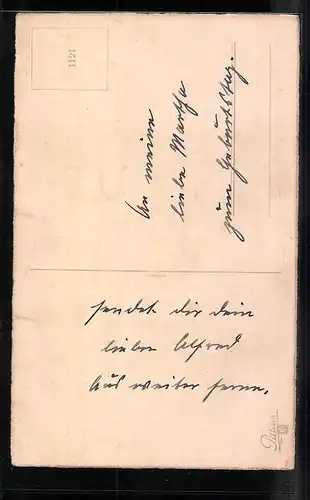 1121
An meine
liebe Martha
zum Geburtstag.
sendet dir dein
lieber Alfred
Aus weiter Ferne.